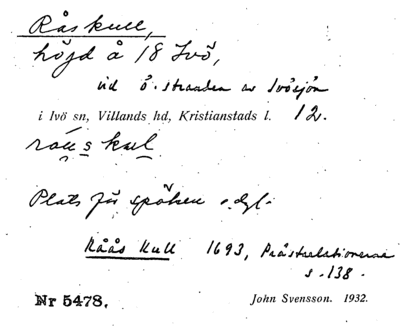 Råskull,
höjd å 18 Ivö,
vid ö. stranden av Ivösjön
i Ivö sn, Villands hd, Kristianstads l. 12.
rås kul
Plats för spöken o. dyl.
Råås Kull 1693, Prästrelationerna
s. 138.
Nr 5478. John Svensson. 1932.